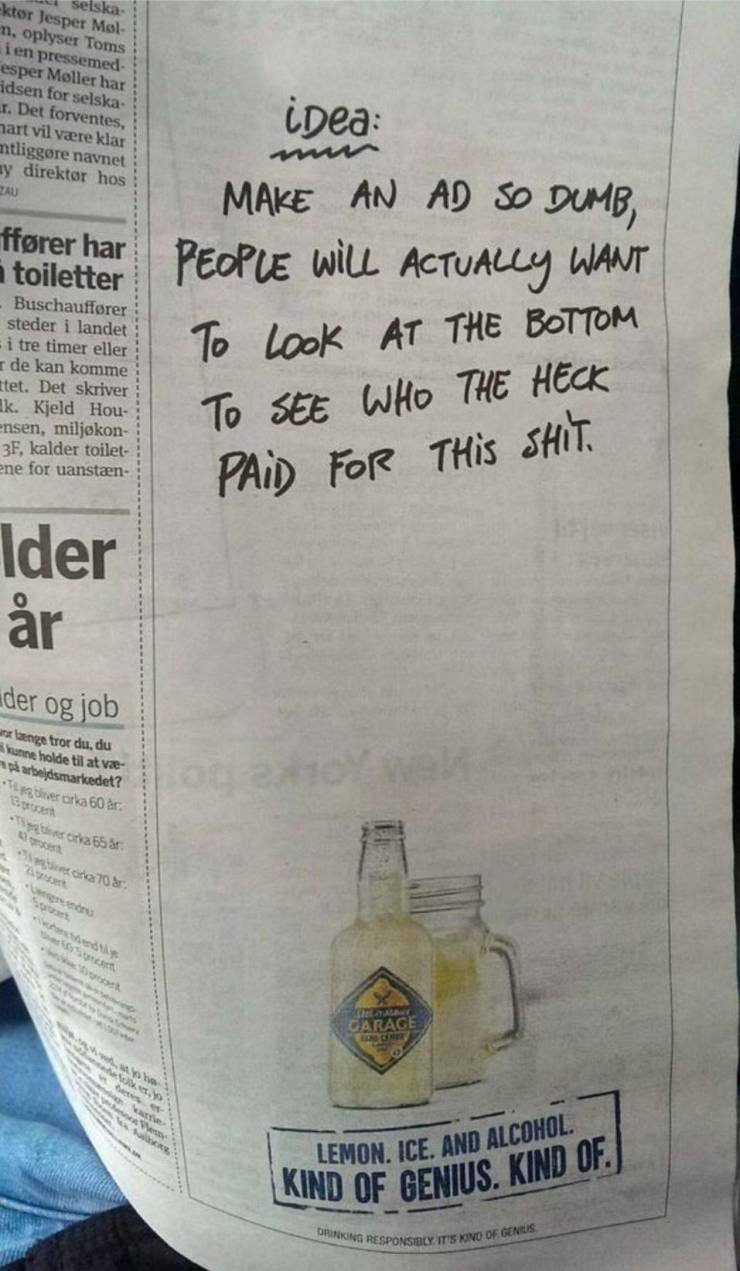 selska-
ktør Jesper Møl-
n, oplyser Toms
i en pressemed-
esper Møller har
idsen for selska-
r. Det forventes,
nart vil være klar
ntliggøre navnet
ny direktør hos
ZAU
ffører har
toiletter
Buschauffører
steder i landet
i tre timer eller
r de kan komme
ttet. Det skriver
lk. Kjeld Hou-
ensen, miljøkon-
3F, kalder toilet-
ene for uanstæn-
lder
år
lder og job
vor længe tror du, du
kunne holde til at væ-
på arbejdsmarkedet?
• Til jeg bliver cirka 60 år:
13 procent
• Til jeg bliver cirka 65 år:
47 procent
• Til jeg bliver cirka 70 år:
21 procent
• Længere endnu:
5 procent
iDea:
MAKE AN AD SO DUMB,
PEOPLE WiLL ACTUALLy WANT
To LooK AT THE BoTTOM
To SEE WHo THE HECK
PAiD FoR THiS SHiT.
GARAGE
LEMON. ICE. AND ALCOHOL.
KIND OF GENIUS. KIND OF.
DRINKING RESPONSIBLY. IT'S KIND OF GENIUS.